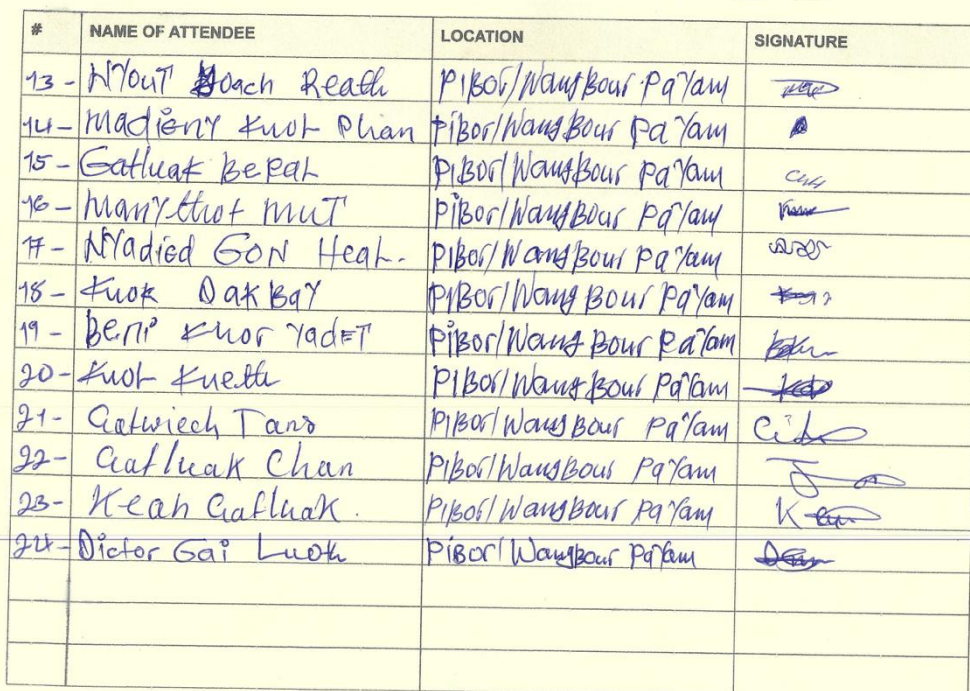 # NAME OF ATTENDEE LOCATION SIGNATURE
13- NYouT Hoach Reath PiBor/WangBour PaYam
14- Madieny Kuol Phan PiBor/WangBour PaYam
15- Gatluak Bepal PiBor/WangBour PaYam
16- Manythot MuT PiBor/WangBour PaYam
17- NYadied GoN Heal. PiBor/WangBour PaYam
18- Kuok DakBaY PiBor/WangBour PaYam
19- Beni Khor YadET PiBor/WangBour PaYam
20- Kuol Kueth PiBor/WangBour PaYam
21- Gatwiech Tang PiBor/WangBour PaYam
22- Gatluak Chan PiBor/WangBour PaYam
23- Keah Gatluak. PiBor/WangBour PaYam
24- Dictor Gai Luoth PiBor/WangBour PaYam